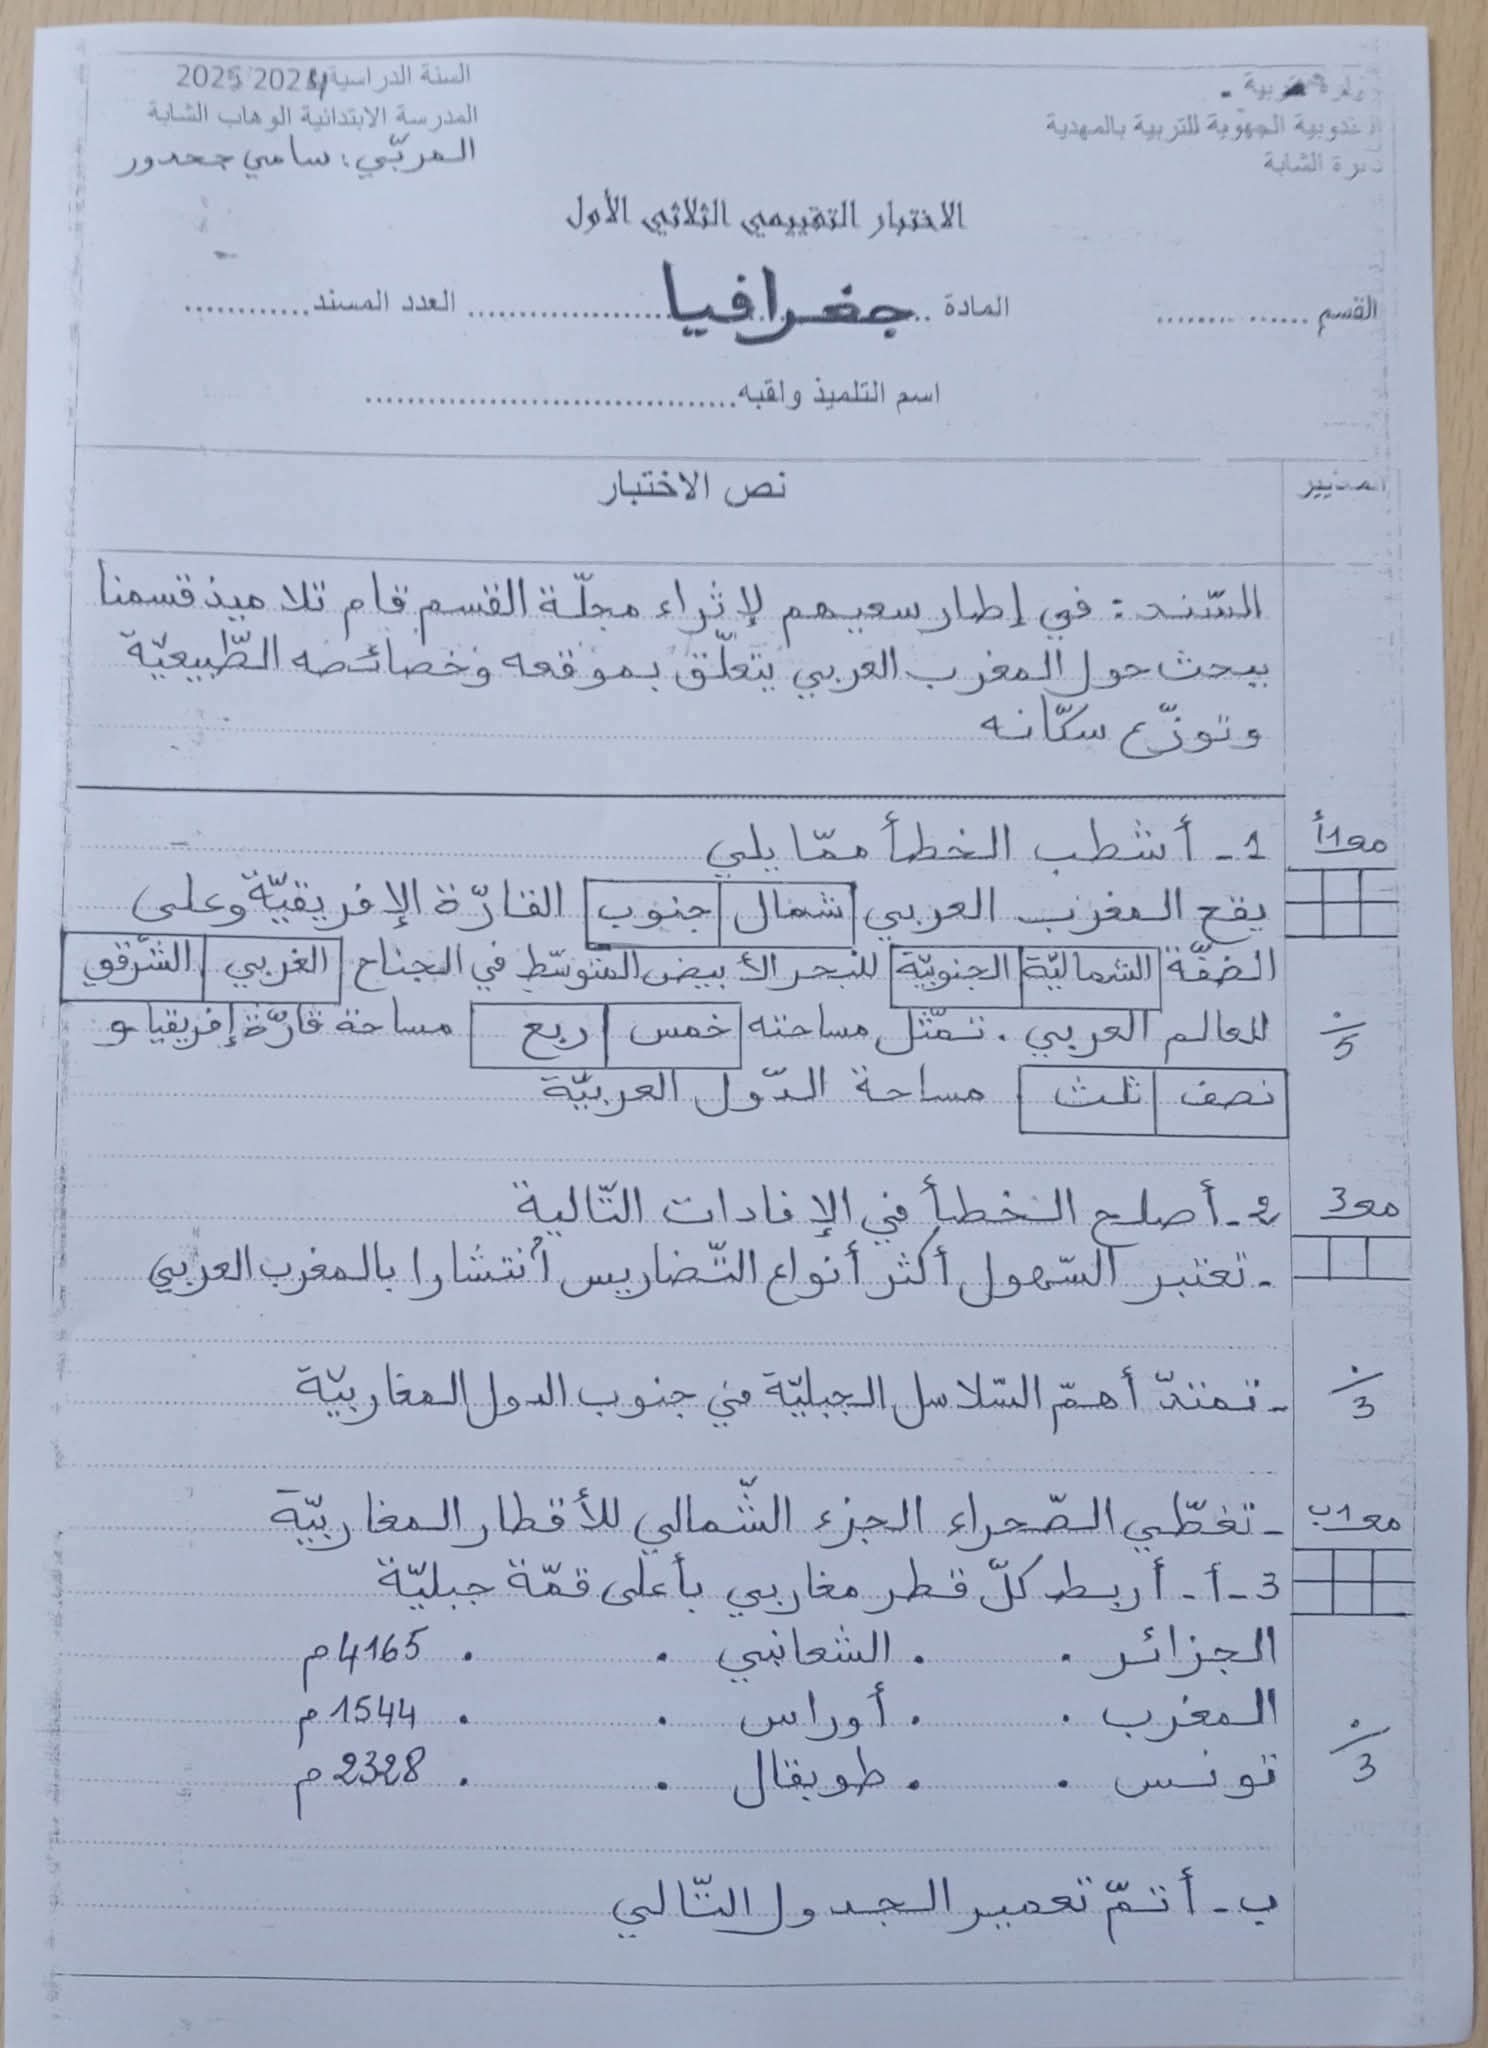 السنة الدراسية 2024 2025
المدرسة الابتدائية الوهاب الشابة
المربّي: سامي جحدور
للتربية بالمهدية
الشابة
الاختبار التقييمي الثلاثي الأول
القسم ............... المادة .. جغرافيا ..................... العدد المسند............
اسم التلميذ ولقبه....................................
المعايير
نص الاختبار
السّند: في إطار سعيهم لإثراء مجلّة القسم قام تلاميذ قسمنا
ببحث حول المغرب العربي يتعلّق بموقعه وخصائصه الطّبيعيّة
وتوزّع سكّانه
مع1أ
1- أشطب الخطأ ممّا يلي
يقع المغرب العربي شمال جنوب القارّة الإفريقيّة وعلى
الضفّة الشماليّة الجنوبيّة للبحر الأبيض المتوسّط في الجناح الغربي الشّرقي
للعالم العربي. تمثّل مساحته خمس ربع مساحة قارّة إفريقيا و
5
نصف ثلث مساحة الدّول العربيّة
مع3
2- أصلح الخطأ في الإفادات التّالية
- تعتبر السّهول أكثر أنواع التّضاريس أنتشارا بالمغرب العربي
- تمتدّ أهمّ السّلاسل الجبليّة في جنوب الدول المغاربيّة
3
- تغطّي الصّحراء الجزء الشّمالي للأقطار المغاربيّة
مع1ب
3- أ- أربط كلّ قطر مغاربي بأعلى قمّة جبليّة
الجزائر . . الشعانبي . . 4165م
المغرب . . أوراس . . 1544م
تونس . . طوبقال . . 2328م
3
ب- أتمّ تعمير الجدول التّالي